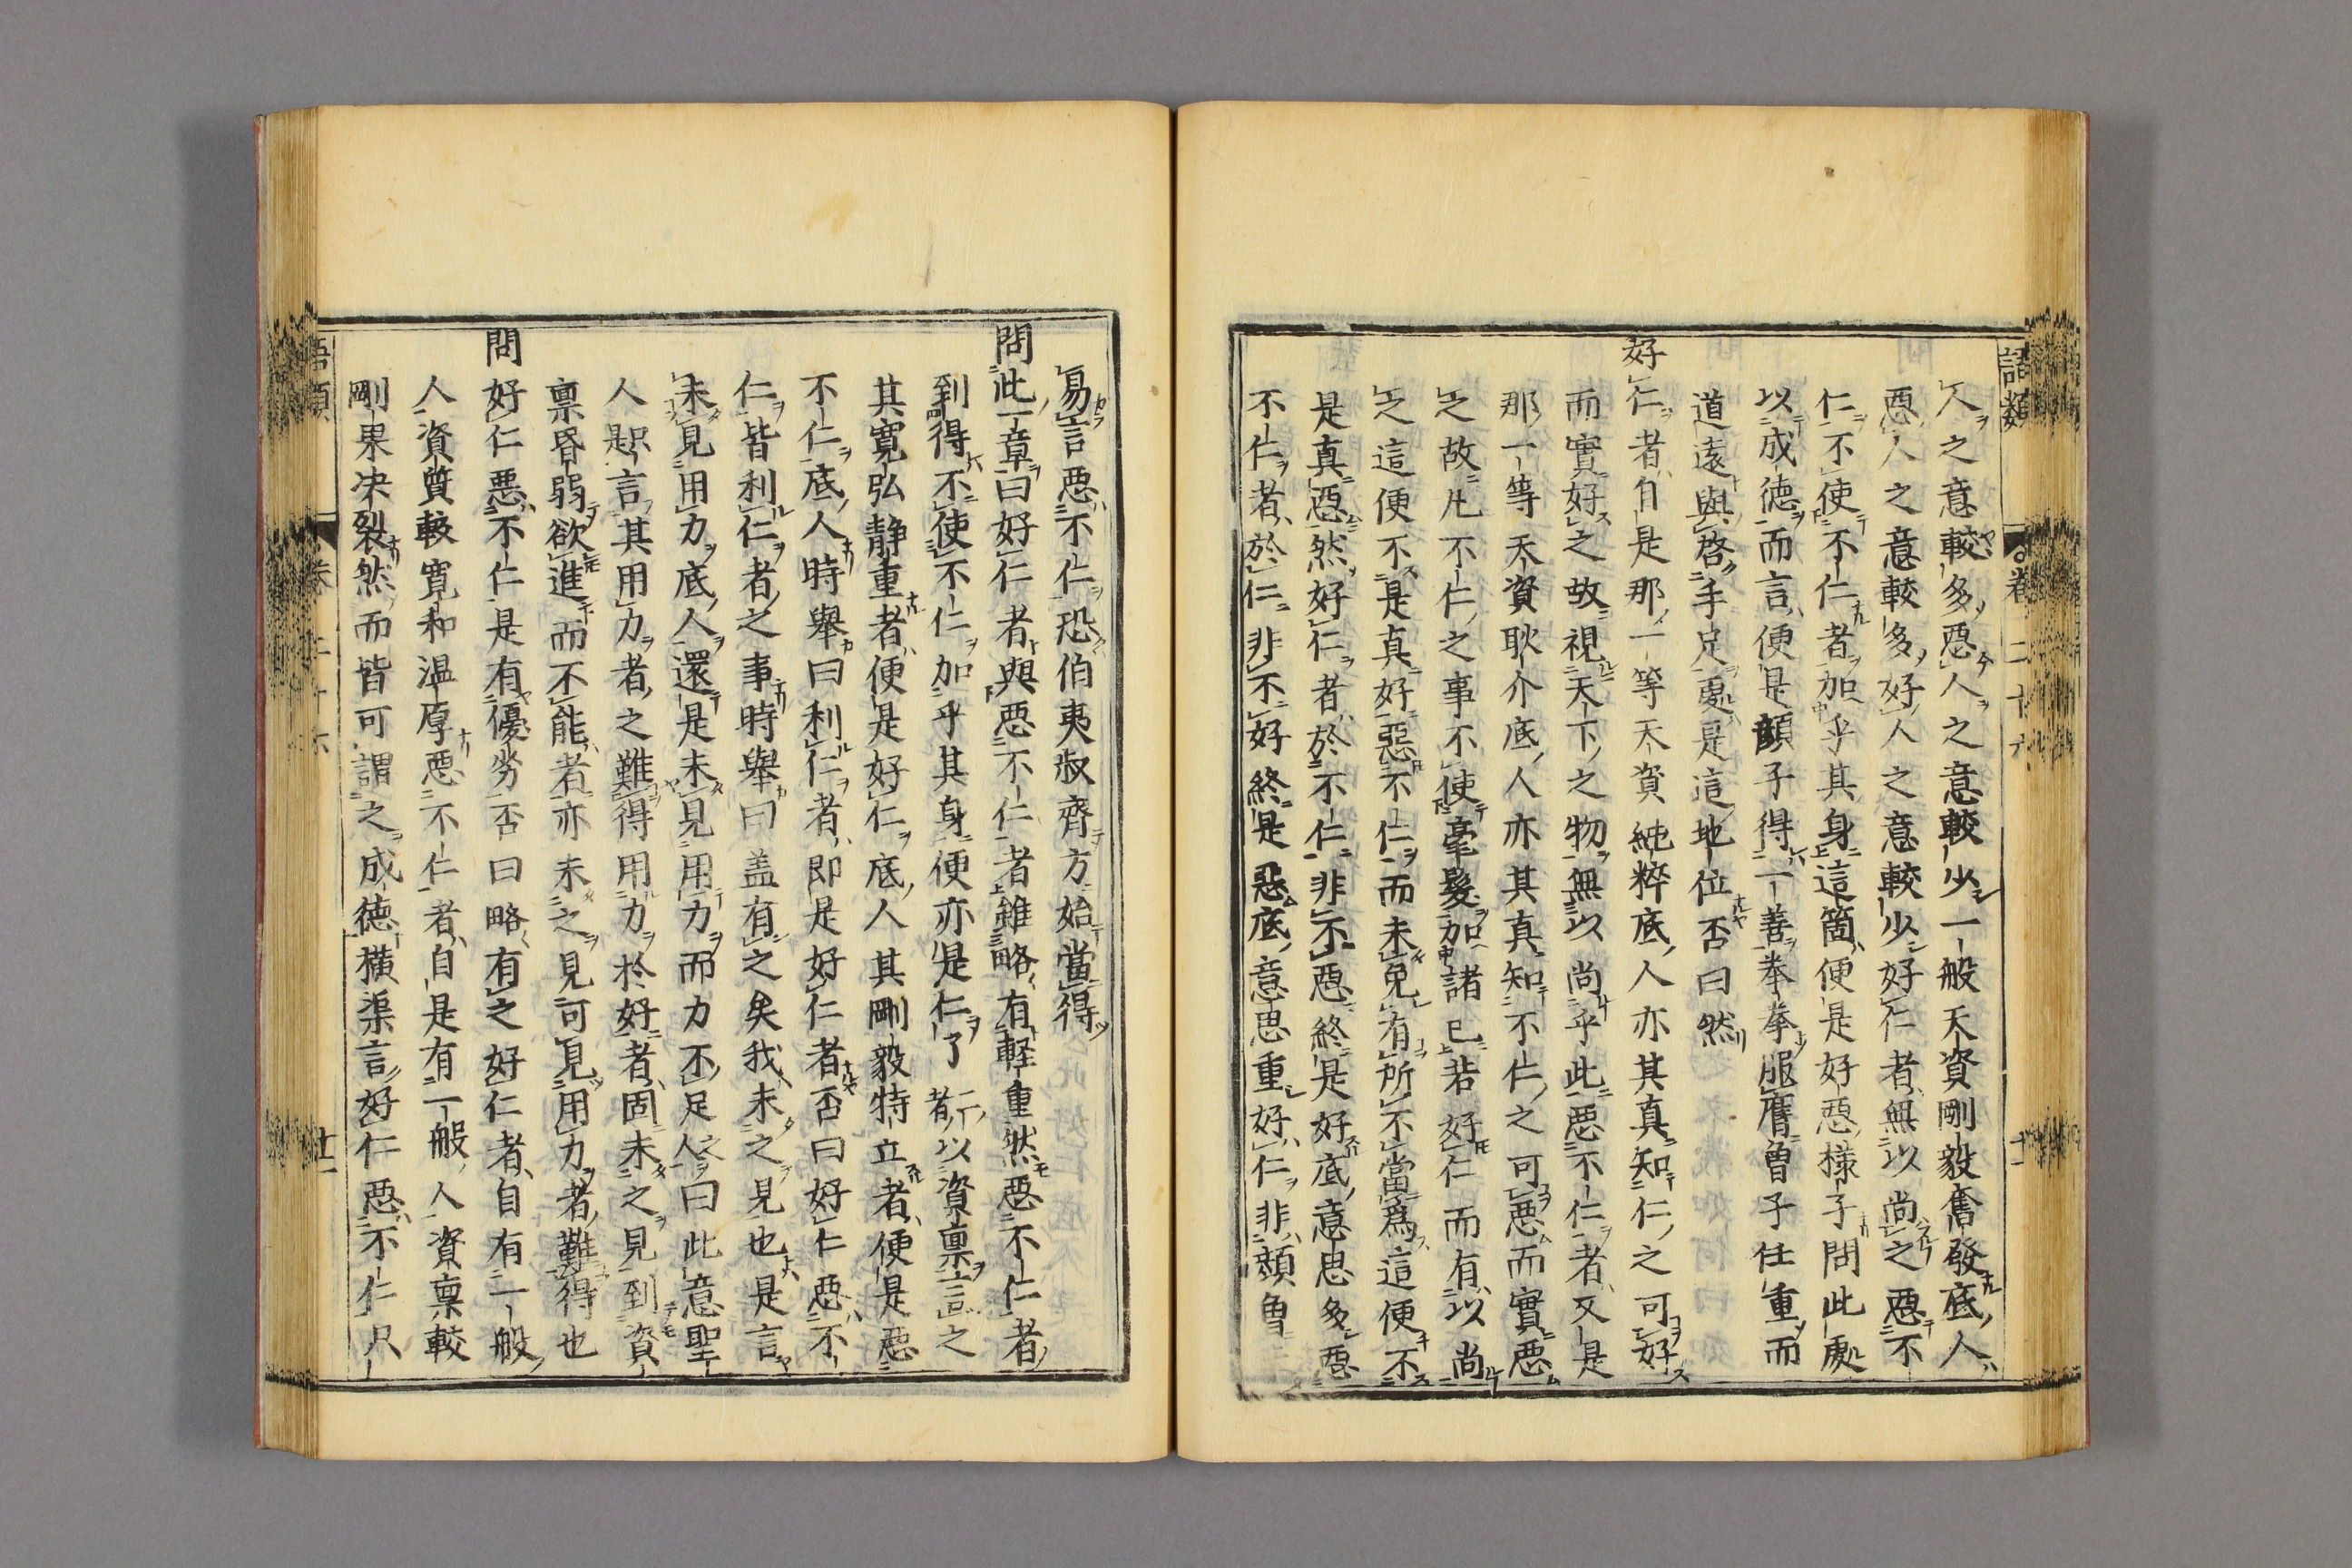 語類 卷二十六 十一
人之意較多惡人之意較少一般天資剛毅奮發底人
惡人之意較多好人之意較少好仁者無以尚之惡不
仁不使不仁者加乎其身這箇便是好惡樣子問此處
以成徳而言便是顔子得一善拳拳服膺曽子任重而
道遠與啓手足處是這地位否曰然
好仁者自是那一等天資純粹底人亦其真知仁之可好
而實好之故視天下之物無以尚乎此惡不仁者又是
那一等天資耿介底人亦其真知不仁之可惡而實惡
之故凡不仁之事不使毫髮加諸已若好仁而有以尚
之這便不是真好惡不仁而未免有所不當爲這便不
是真惡然好仁者於不仁非不惡終是好底意思多惡
不仁者於仁非不好終是惡底意思重好仁非顔曽
易言惡不仁恐伯夷叔齊方始當得
問此一章曰好仁者與惡不仁者雖略有輕重然惡不仁者
到得不使不仁加乎其身便亦是仁了二者以資禀言之
其寛弘靜重者便是好仁底人其剛毅特立者便是惡
不仁底人時舉曰利仁者即是好仁者否曰好仁惡不
仁皆利仁者之事時舉曰盖有之矣我未之見也是言
未見用力底人還是未見用力而力不足人曰此意聖
人只是言其用力者之難得用力於好者固未之見到資
禀昏弱欲進而不能者亦未之見可見用力者難得也
問好仁惡不仁是有優劣否曰略有之好仁者自有一般
人資質較寛和温厚惡不仁者自是有一般人資禀較
剛果决裂然而皆可謂之成徳横渠言好仁惡不仁只
語類 卷二十六 十一